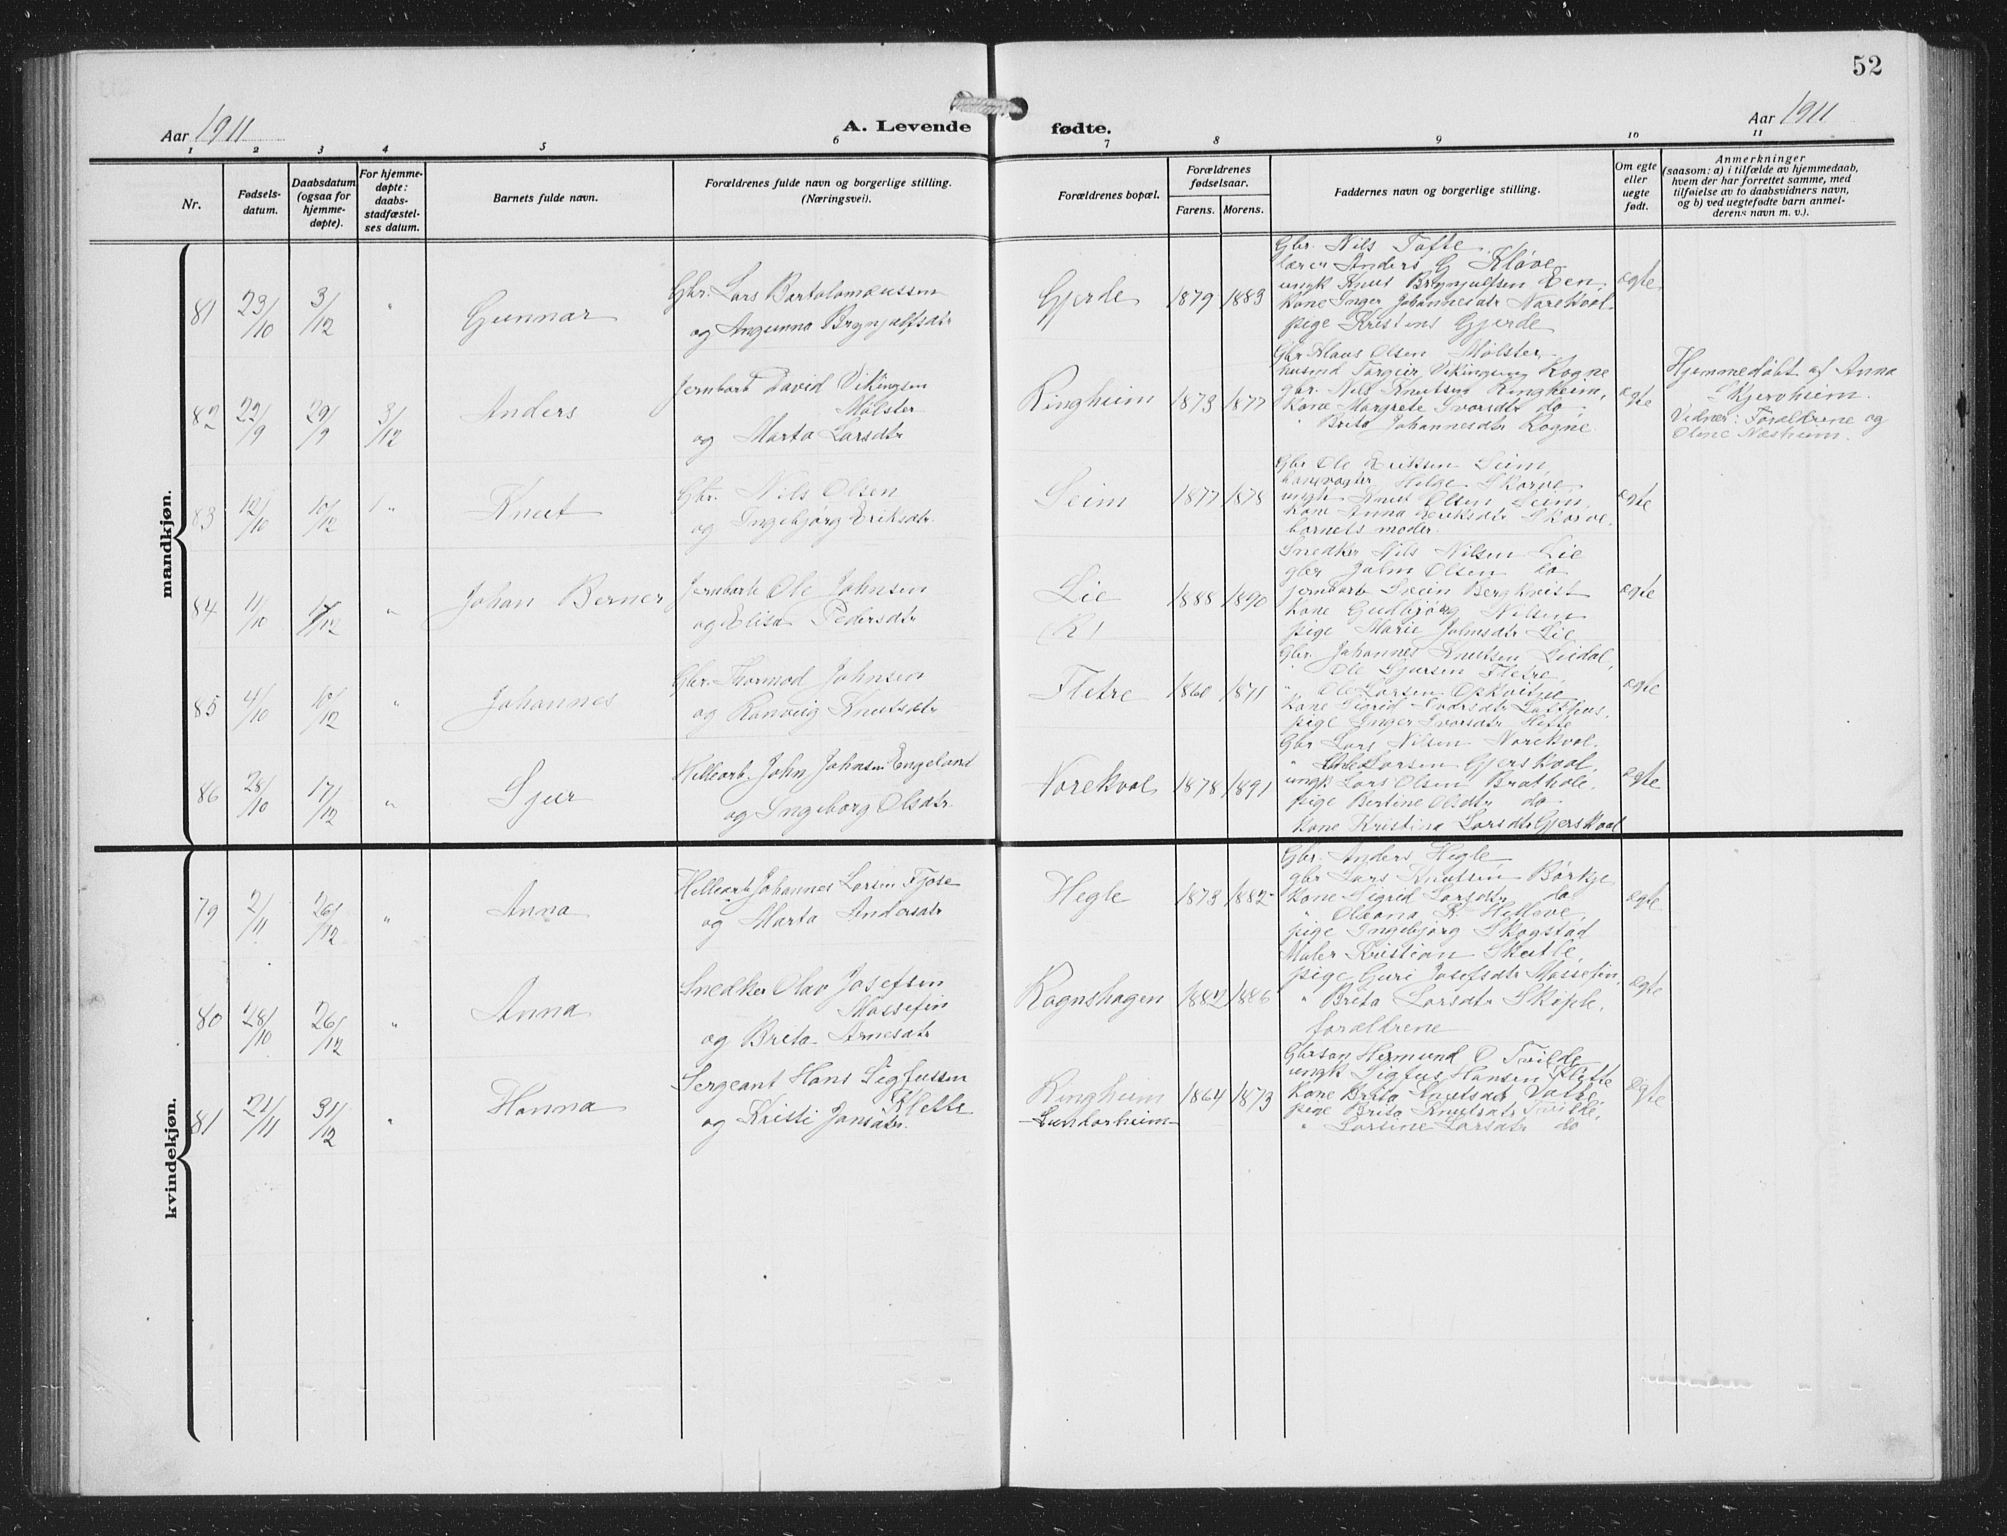 52
Aar 1911
A. Levende fødte.
Aar 1911
1 2 3 4 5 6 7 8 9 10 11
Nr.
Fødsels-
datum.
Daabsdatum
(ogsaa for
hjemme-
døpte).
For hjemme-
døpte:
daabs-
stadfæstel-
ses datum.
Barnets fulde navn.
Forældrenes fulde navn og borgerlige stilling.
(Næringsvei).
Forældrenes bopæl.
Forældrenes
fødselsaar.
Farens. Morens.
Faddernes navn og borgerlige stilling.
Om egte
eller
uegte
født.
Anmerkninger
(saasom: a) i tilfælde av hjemmedaab,
hvem der har forrettet samme, med
tilføielse av to daabsvidners navn,
og b) ved uegtefødte barn anmel-
derens navn m. v.).
mandkjøn.
81 23/10 3/12 " Gunnar
Gbr. Lars Bartolomæussen
og Ingunna Brynjulfsdtr
Gjerde 1879 1883
Gbr. Nils Tofte
lærer Anders G Kløve
ungk Knut Brynjulfsen Een,
Kone Inger Johannesdtr Norekval
pige Kristens Gjerde
egte
82 22/9 29/9 3/12 Anders
Jernbarb David Vikingsen
Mølster
og Marta Larsdtr
Ringheim 1873 1877
Gbr Klaus Olsen Mølster,
husmd Torgeir Vikingsen Rogne
gbr. Nils Knutsen Ringheim,
Kone Margrete Ivarsdtr do,
" Brita Johannesdtr Rogne
egte
Hjemmedøbt af Anna
Skjervheim.
Vidner: Forældrene og
Oline Næsheim.
83 12/10 10/12 " Knut
Gbr. Nils Olsen
og Ingebjørg Eriksdtr.
Seim 1877 1878
Gbr Ole Eriksen Seim,
Helge Skorve
ungk Knut Olsen Seim,
Kone Anna Eriksdtr Skorve.
barnets moder.
egte
84 11/10 /12 " Johan Berner
Jernbarb Ole Johnsen
og Elisa Pedersdtr
Lie 1888 1890
Snedker Nils Nilsen Lie
gbr John Olsen do
jernbarb Svein Bergkvist
Kone Gudbjørg Nilsen
pige Marie Johnsdtr Lie
egte
85 4/10 10/12 " Johannes
Gbr. Thormod Johnsen
og Ranveig Knutsdtr
Fletre 1860 1871
Gbr. Johannes Knutsen Liedal,
" Ole Sjursen Fletre,
" Ole Larsen Opkvitne
Kone Sigrid
pige Inger Ivarsdtr Hefte
egte
86 28/10 17/12 " Sjur
Hellearb. John Johnsen Engeland
og Ingeborg Olsdtr.
Norekval 1878 1891
Gbr Lars Nilsen Norekval.
" Larsen Gjerskval,
ungk Lars Olsen Brathole,
pige Bertine Olsdtr do
Kone Kristina Larsdtr Gjerskval
egte
kvindekjøn.
79 2/11 26/12 " Anna
Hellearb Johannes Larsen Fjose
og Marta Andersdtr
Hegle 1873 1882
Gbr. Anders Hegle,
gbr Lars Knutsen Børkje
Kone Sigrid Larsdtr do
" Oleana K Helleve,
pige Ingebjørg Skogstad
egte
80 28/10 26/12 " Anna
Snedker Olav Josefsen
Massefin
og Brita Arnesdtr
Rognshagen 1882 1886
Maler Kristian Skutle,
pige Guri Josefsdtr Massefin,
" Brita Larsdtr Skiple,
forældrene
egte
81 21/11 31/12 " Hanna
Sergeant Hans Sigfussen
Klette
og Kristi Jansdtr.
Ringheim
Lundarheim 1864 1873
Gbrsøn Hermund O Tvilde
ungk Sigfus Hansen Klette
Kone Brita Knutsdtr Vatne,
pige Brita Knutsdtr Tvilde,
" Larsine Larsdtr do
egte